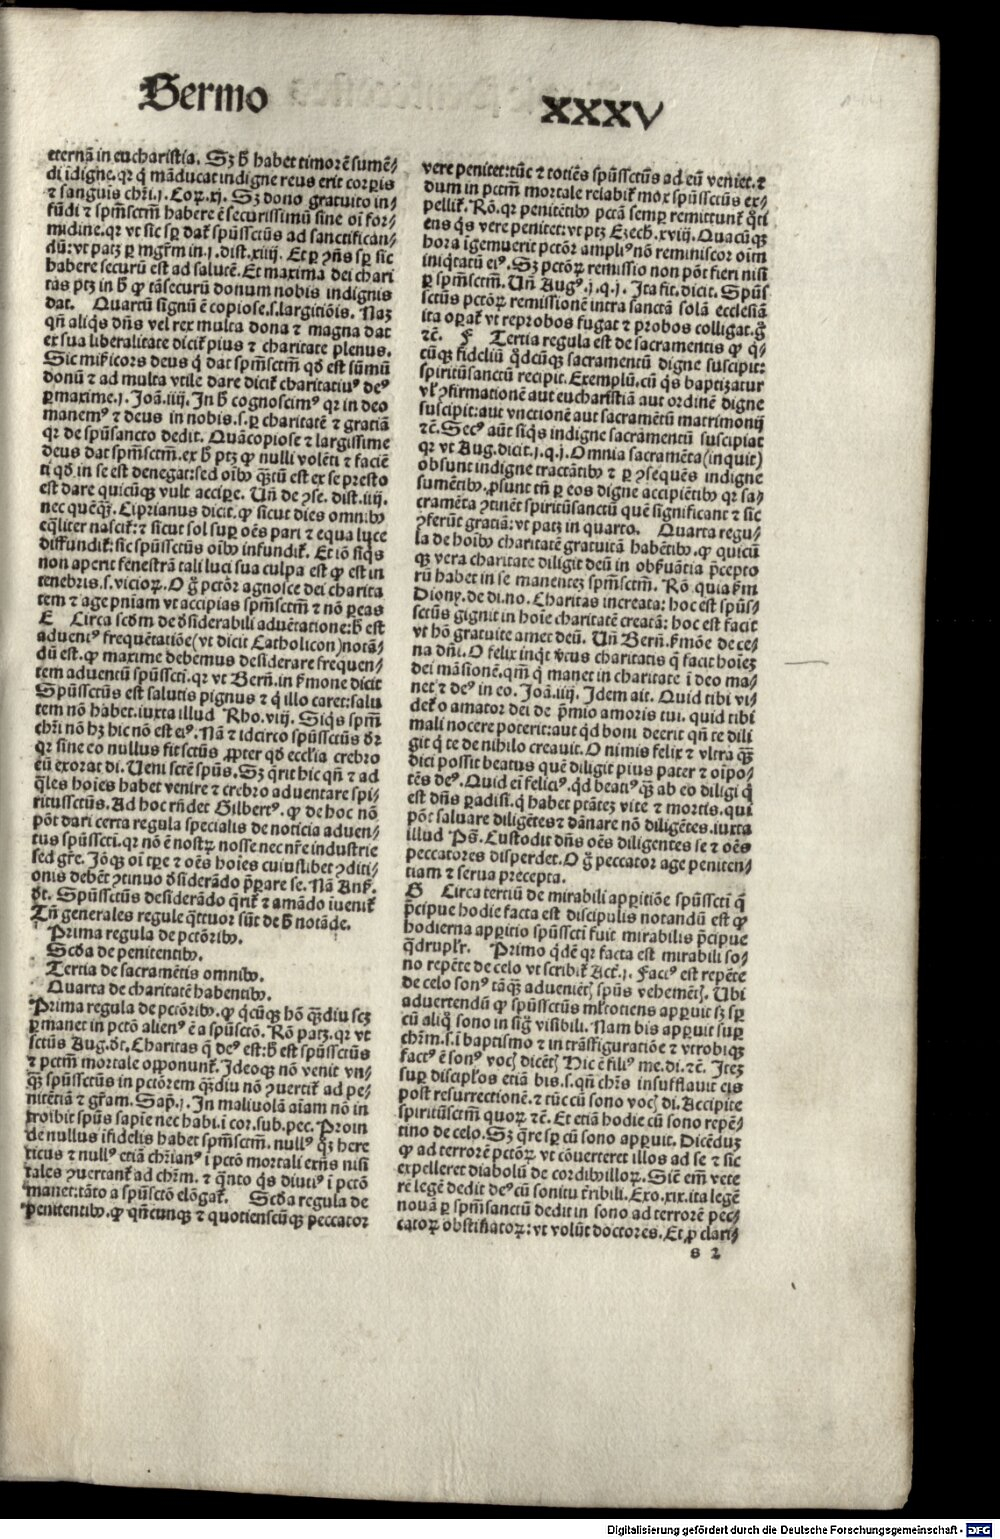 Sermo
XXXV
eternã in eucharistia. Sz hͦ habet timorẽ sumẽ⸗
di ĩdigne. qꝛ q̇ mãducat indigne reus erit corpꝑis
⁊ sanguis chꝛi. j. Coꝝ. xj. Sz dono gratuito in⸗
fũdi ⁊ spm̃sctm̃ habere ẽ securissimũ sine oĩ foꝛ⸗
midine. qꝛ vt sic sꝑ daꝉ spũssctũs ad sanctifican⸗
dũ: vt patꝫ ꝑ mgr̃m in. j. dist. xiiij. Et ꝑ ꝯñs sꝑ sic
habere securũ est ad salutẽ. Et maxima dei chari
tas ptꝫ in hͦ ꝙ tãsecurũ donum nobis indignis
dat. Quartũ signũ ẽ copiose. s. largitiõis. Naꝫ
qñ aliq̇s dñs vel rex multa dona ⁊ magna dat
ex sua liberalitate dicit᷑ pius ⁊ charitate plenus.
Sic mĩẜicoꝛs deus q̇ dat spm̃sctm̃ qd̓ est sũmũ
donũ ⁊ ad multa vtile dare dicit᷑ charitatiuꝰ deꝰ
ꝑmaxime. j. Joã. iiij. In hͦ cognoscimꝰ qꝛ in deo
manemꝰ ⁊ deus in nobis. s. ꝑ charitatẽ ⁊ gratiã
qꝛ de spũsancto dedit. Quãcopiose ⁊ largissime
deus dat spm̃sctm̃. ex hͦ ptꝫ ꝙ nulli volẽti ⁊ faciẽ
ti qd̓ in se est denegat: sed oĩbꝰ q̃ꝫtũ est ex se presto
est dare quicũqꝫ vult acciꝑe. Uñ de ꝯse. dist. iiij.
nec quẽqꝫ. Ciprianus dicit. ꝙ sicut dies omnibꝰ
eq̃liter nascit᷑: ⁊ sicut sol suꝑ oẽs pari ⁊ equa luce
diffundit᷑: sic spũssctũs oĩbꝰ infundit᷑. Et iõ siq̇s
non aperit fenestrã tali luci sua culpa est ꝙ est in
tenebris. s. vicioꝝ. O g̊ pctõꝛ agnosce dei charita
tem ⁊ age pniam vt accipias spm̃sctm̃ ⁊ nõ pereas
E Circa scd̓m de d̓siderabili aduẽtatione: hͦ est
aduentꝰ frequẽtatiõe (vt dicit Catholicon) notã⸗
dũ est. ꝙ maxime debemus desiderare frequen⸗
tem aduentũ spũsscti. qꝛ vt Bern. in ẜmone dicit
Spũssctũs est salutis pignus ⁊ q̇ illo caret: salu
tem nõ habet. iuxta illud Rho. viij. Siq̇s spm̃
chꝛi nõ hꝫ hic nõ est eiꝰ. Nã ⁊ idcirco spũssctũs d̓ꝛ
qꝛ sine eo nullus fit sctũs ꝓpter qd̓ ecclĩa crebro
eũ exorat di. Ueni sctẽ spũs. Sz q̃rit̃ hic qñ ⁊ ad
q̃les hoĩes habet venire ⁊ crebro aduentare spi⸗
ritussctũs. Ad hoc rñdet Gilbertꝰ. ꝙ de hoc nõ
põt dari certa regula specialis de noticia aduen⸗
tus spũsscti. qꝛ nõ ẽ nostꝝ nosse nec nr̃e industrie
sed gr̃e. Jõqꝫ oĩ tꝑe ⁊ oẽs hoĩes cuiuslibet ꝯditi⸗
onis debẽt ꝯtinuo d̓siderãdo p̃parare se. Nã Ansͭ.
d̓t. Spũssctũs desiderãdo q̃rit᷑ ⁊ amãdo iuenit᷑
Tñ generales regule q̃ttuor sũt de hͦ notãde.
Prima regula de pctõribꝰ.
Scd̓a de penitentibꝰ.
Tertia de sacramẽtis omnibꝰ.
Quarta de charitatẽ habentibꝰ.
Prima regula de pctõribꝰ. ꝙ q̇cũqꝫ hõ q̃ꝫdiu scꝫ
ꝑmanet in pctõ alienꝰ ẽ a spũsctõ. Rõ patꝫ. qꝛ vt
sctũs Aug. d̓t. Charitas q̃ deꝰ est: hͦ est spũssctũs
⁊ pctm̃ moꝛtale opponunt᷑. Jdeoqꝫ nõ venit vn⸗
q̃ꝫ spũssctũs in pctõrem q̃ꝫdiu nõ ꝯuertit᷑ ad pe⸗
nitẽtiã ⁊ gr̃am. Sap̃. j. In maliuolã aĩam nõ in
troibit spũs sapĩe nec habi. i coꝛ. sub. pec. Proin
de nullus ĩfidelis habet spm̃sctm̃. nullꝰ q̃ꝫ here
ticus ⁊ nullꝰ etiã chꝛianꝰ i pctõ moꝛtali exñs nisi
tales ꝯuertant᷑ ad chꝛm. ⁊ q̃nto q̇s diutiꝰ i pctõ
manet: tãto a spũsctõ elõgat᷑. Scd̓a regula de
penitentibꝰ. ꝙ qñcunqꝫ ⁊ quotienscũqꝫ peccatoꝛ
vere penitet: tũc ⁊ totiẽs spũssctũs ad eũ veniet. ⁊
dum in pctm̃ moꝛtale relabit᷑ mox spũssctũs ex⸗
pellit᷑. Rõ. qꝛ penitẽtibꝰ pctã semꝑ remittunt᷑ q̃ti
ens q̇s vere penitet: vt ptꝫ Ezech. xviij. Quacũqꝫ
hora igemuerit pctõꝛ ampliꝰ nõ reminiscoꝛ oĩm
iniq̇tatũ eiꝰ. Sz pctõꝝ remissio non põt fieri nisi
ꝑ spm̃sctm̃. Uñ Augꝰ. j. q. j. Jta fit. dicit. Spũs
sctũs pctõꝝ remissionẽ intra sanctã solã ecclesiã
ita operat᷑ vt reprobos fugat ⁊ probos colligat. g̊
⁊c̃. F Tertia regula est de sacramentis ꝙ q̇⸗
cũqꝫ fideliũ q̇dcũqꝫ sacramentũ digne suscipit:
spiritũsanctũ recipit. Exemplũ. cũ q̇s baptizatur
vꝉ ꝯfirmationẽ aut eucharistiã aut oꝛdinẽ digne
suscipit: aut vnctionẽ aut sacramẽtũ matrimonij
⁊c̃. Secꝰ aũt siq̇s indigne sacramentũ suscipiat
qꝛ vt Aug. dicit. j. q. j. Omnia sacramẽta (inquit)
obsunt indigne tractãtibꝰ ⁊ ꝑ ꝯsequẽs indigne
sumẽtibꝰ. ꝓsunt tñ ꝑ eos digne accipiẽtibꝰ qꝛ sa⸗
cramẽta ꝯtinẽt spiritũsanctũ quẽ significant ⁊ sic
ꝯferũt gratiã: vt patꝫ in quarto. Quarta regu⸗
la de hoĩbꝰ charitatẽ gratuitã habẽtibꝰ. ꝙ quicũ
qꝫ vera charitate diligit deũ in obẜuãtia p̃cepto
rũ habet in se manentez spm̃sctm̃. Rõ quia ẜm
Diony. de di. no. Charitas increata: hoc est spũs⸗
sctũs gignit in hoĩe charitatẽ creatã: hoc est facit
vt hõ gratuite amet deũ. Uñ Bern. ẜmõe de ce⸗
na dñi. O felix inqͭ v̓tus charitatis q̃ facit hoĩez
dei mãsionẽ. qm̃ q̇ manet in charitate i deo ma⸗
net ⁊ deꝰ in eo. Joã. iiij. Jdem ait. Quid tibi vi⸗
det᷑ o amatoꝛ dei de p̃mio amoꝛis tui. quid tibi
mali nocere poterit: aut q̇d boni deerit qñ te dili
git q̇ te de nihilo creauit. O nimis felix ⁊ vltra q̃ꝫ
dici possit beatus quẽ diligit pius pater ⁊ oĩpo⸗
tẽs deꝰ. Quid eĩ feliciꝰ. q̇d beatiꝰ q̃ꝫ ab eo diligi q̇
est dñs paradisi. q̇ habet ptãtez vite ⁊ moꝛtis. qui
põt saluare diligẽtes ⁊ dãnare nõ diligẽtes. iuxta
illud Ps̃. Custodit dñs oẽs diligentes se ⁊ oẽs
peccatores disperdet. O g̊ peccatoꝛ age peniten⸗
tiam ⁊ serua precepta.
G Circa tertiũ de mirabili appitiõe spũsscti q̃
p̃cipue hodie facta est discipulis notandũ est ꝙ
hodierna appitio spũsscti fuit mirabilis p̃cipue
q̃drupl̃r. Primo q̇dẽ qꝛ facta est mirabili so⸗
no repẽte de celo vt scribit᷑ Act̃. j. Factꝰ est repẽte
de celo sonꝰ tãq̃ꝫ adueniẽt̃ spũs vehemẽt̃. Ubi
aduertendũ ꝙ spũssctũs ml̓totiens appuit sꝫ sꝑ
cũ aliq̃ sono in sig̃ visibili. Nam bis appuit suꝑ
chꝛm. s. i baptismo ⁊ in trãsfiguratiõe ⁊ vtrobiqꝫ
factꝰ ẽ sonꝰ voc̃ dicẽt̃ Hic ẽ filiꝰ me. di. ⁊c̃. Jteꝫ
suꝑ discipl̓os etiã bis. s. qñ chꝛs insufflauit eis
post resurrectionẽ. ⁊ tũc cũ sono voc̃ di. Accipite
spiritũsctm̃ quoꝝ ⁊c̃. Et etiã hodie cũ sono repẽ⸗
tino de celo. Sz q̃re sꝑ cũ sono appuit. Dicẽduꝫ
ꝙ ad terrorẽ pctõꝝ vt cõuerteret illos ad se ⁊ sic
expelleret diabolũ de coꝛdibꝰ illoꝝ. Sic̃ em̃ vete
rẽ legẽ dedit deꝰ cũ sonitu t̓ribili. Exo. xix. ita legẽ
nouã ꝑ spm̃sanctũ dedit in sono ad terrorẽ pec⸗
catoꝝ obstinatoꝝ: vt volũt doctores. Et ꝓ clari⸗
s 2
Digitalisierung gefördert durch die Deutsche Forschungsgemeinschaft - DFG